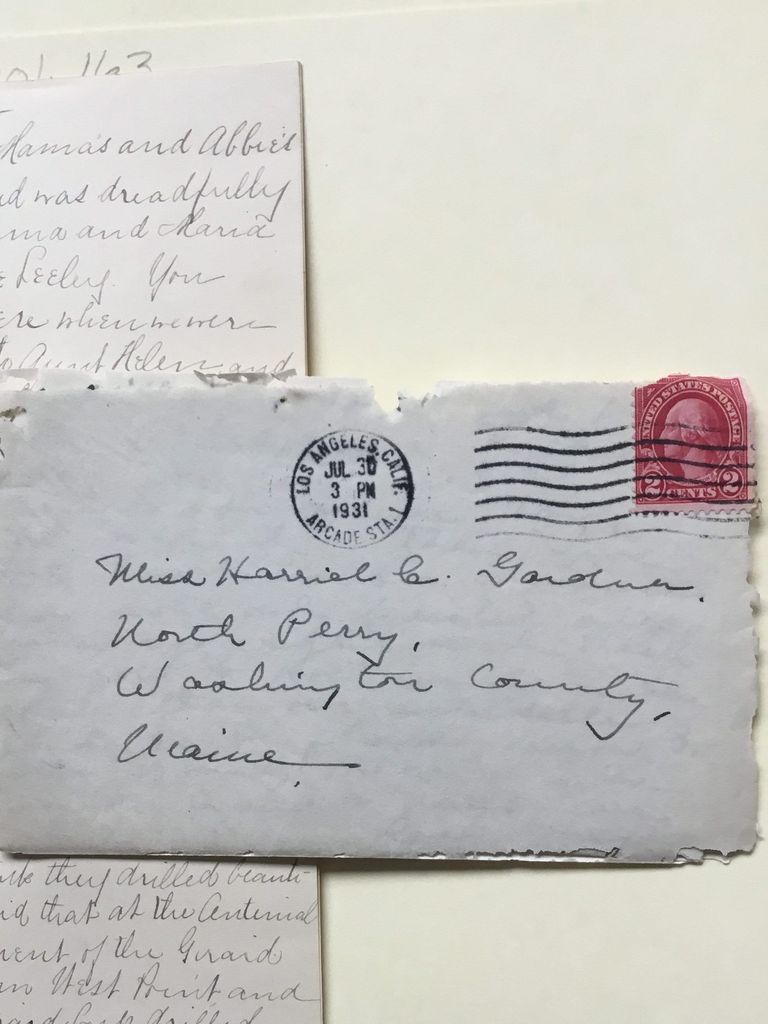 Mama's and Abbie's
was dreadfully
and Maria
Seeley. You
when we were
to Aunt Helen and
LOS ANGELES, CALIF.
JUL 30
3 PM
1931
ARCADE STA. 1
UNITED STATES POSTAGE
2 CENTS 2
Miss Harriel C. Gardner.
North Perry,
Washington County,
Maine
they drilled beauti-
that at the Centenial
of the Girard
West Point and
drilled